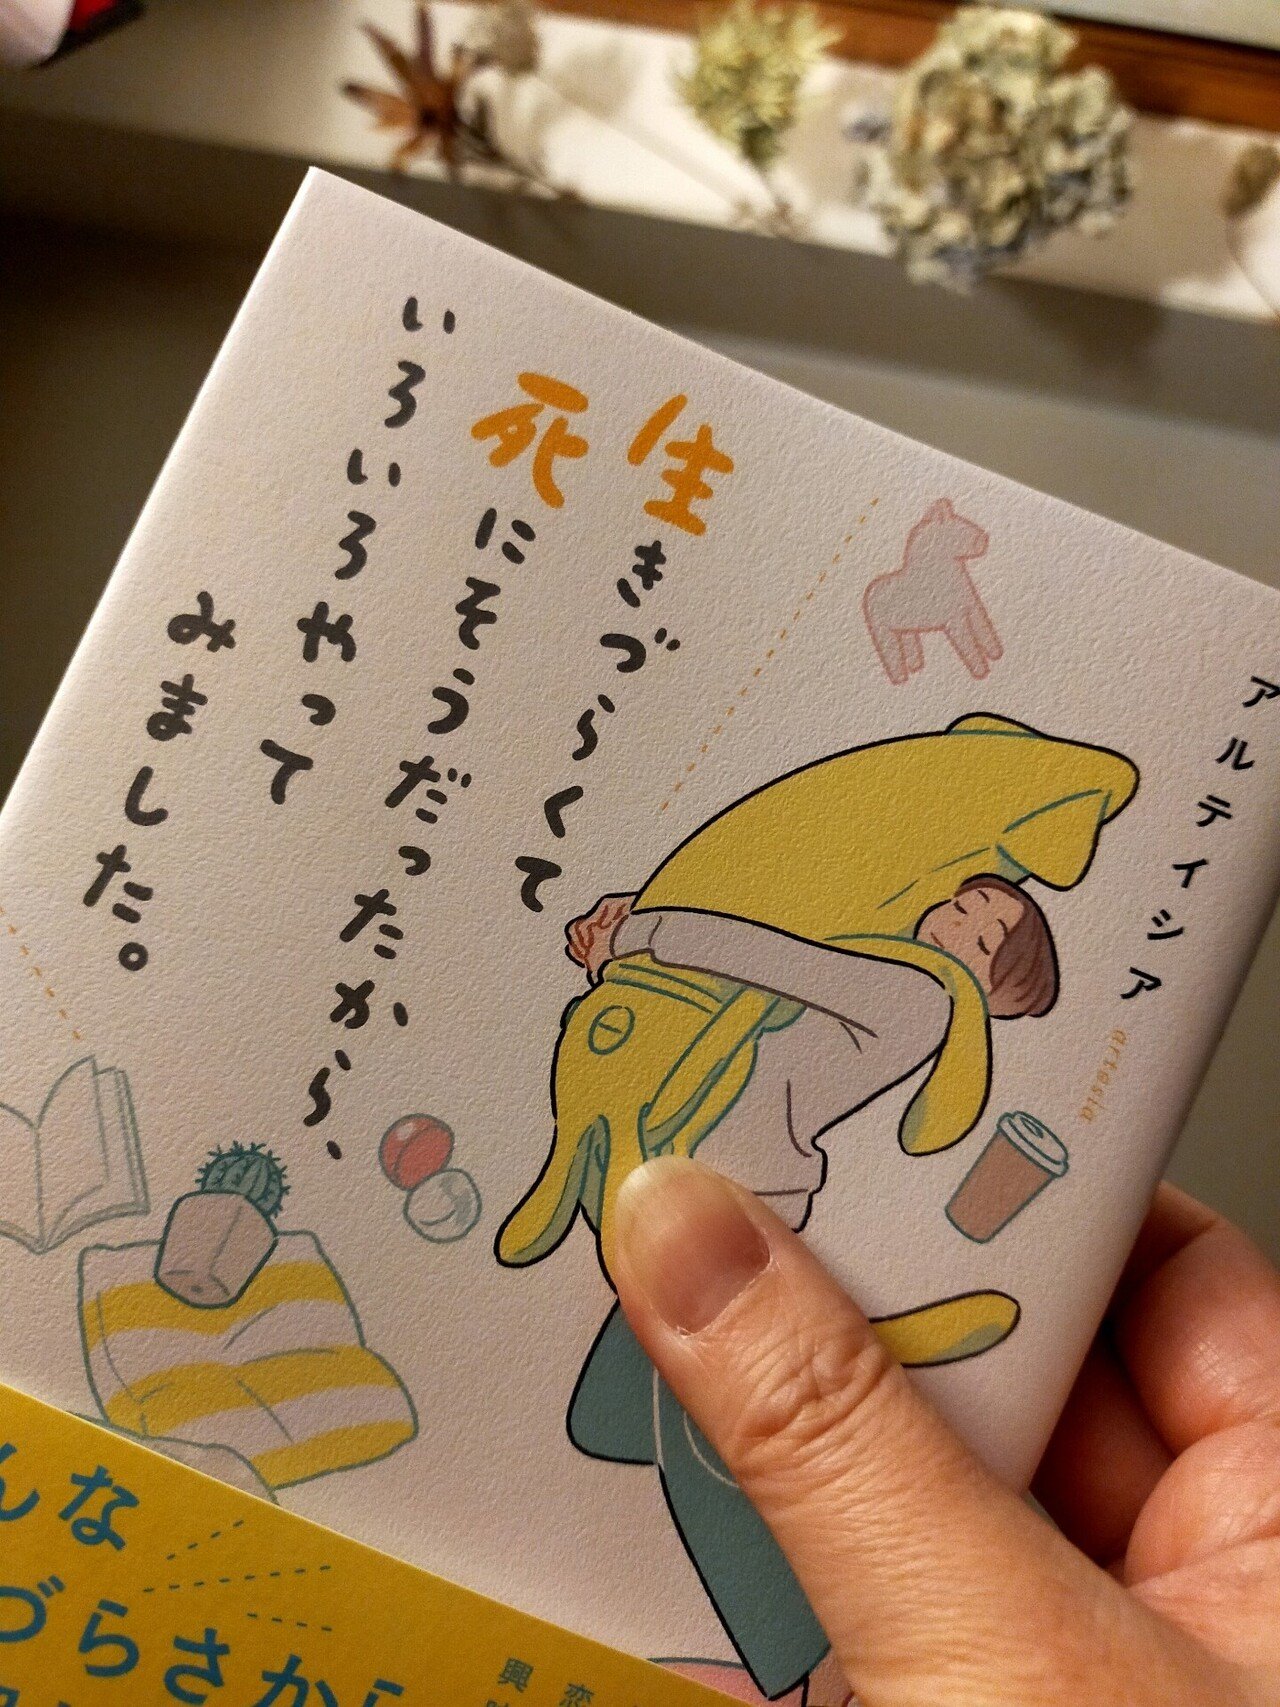 アルテイシア
artesia
生きづらくて
死にそうだったから、
いろいろやって
みました。
んな
づらさから